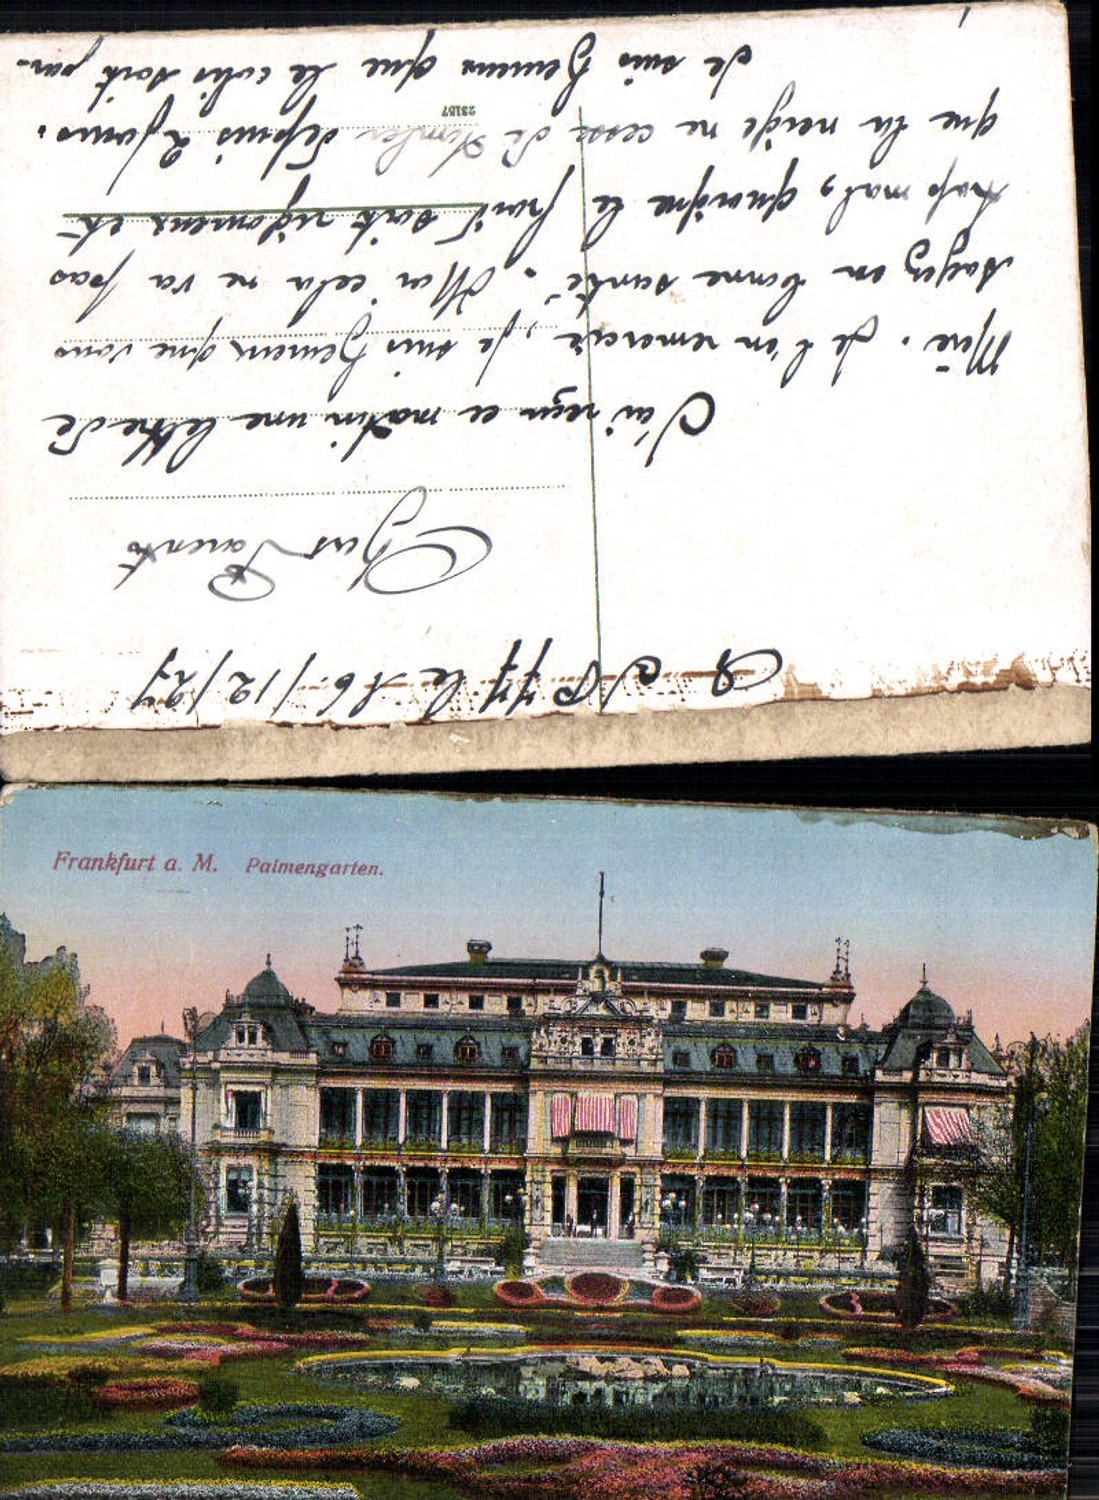 le 16/12/27
Chers Parents
J'ai reçu ce matin une lettre de
Mère. Je l'en remercie, je suis heureux que vous
soyez en bonne santé. Moi cela ne va pas
trop mal, quoique le froid soit rigoureux et
que la neige ne cesse de tomber depuis 2 jours.
Je suis heureux que le colis soit par-
23157
Frankfurt a. M. Palmengarten.